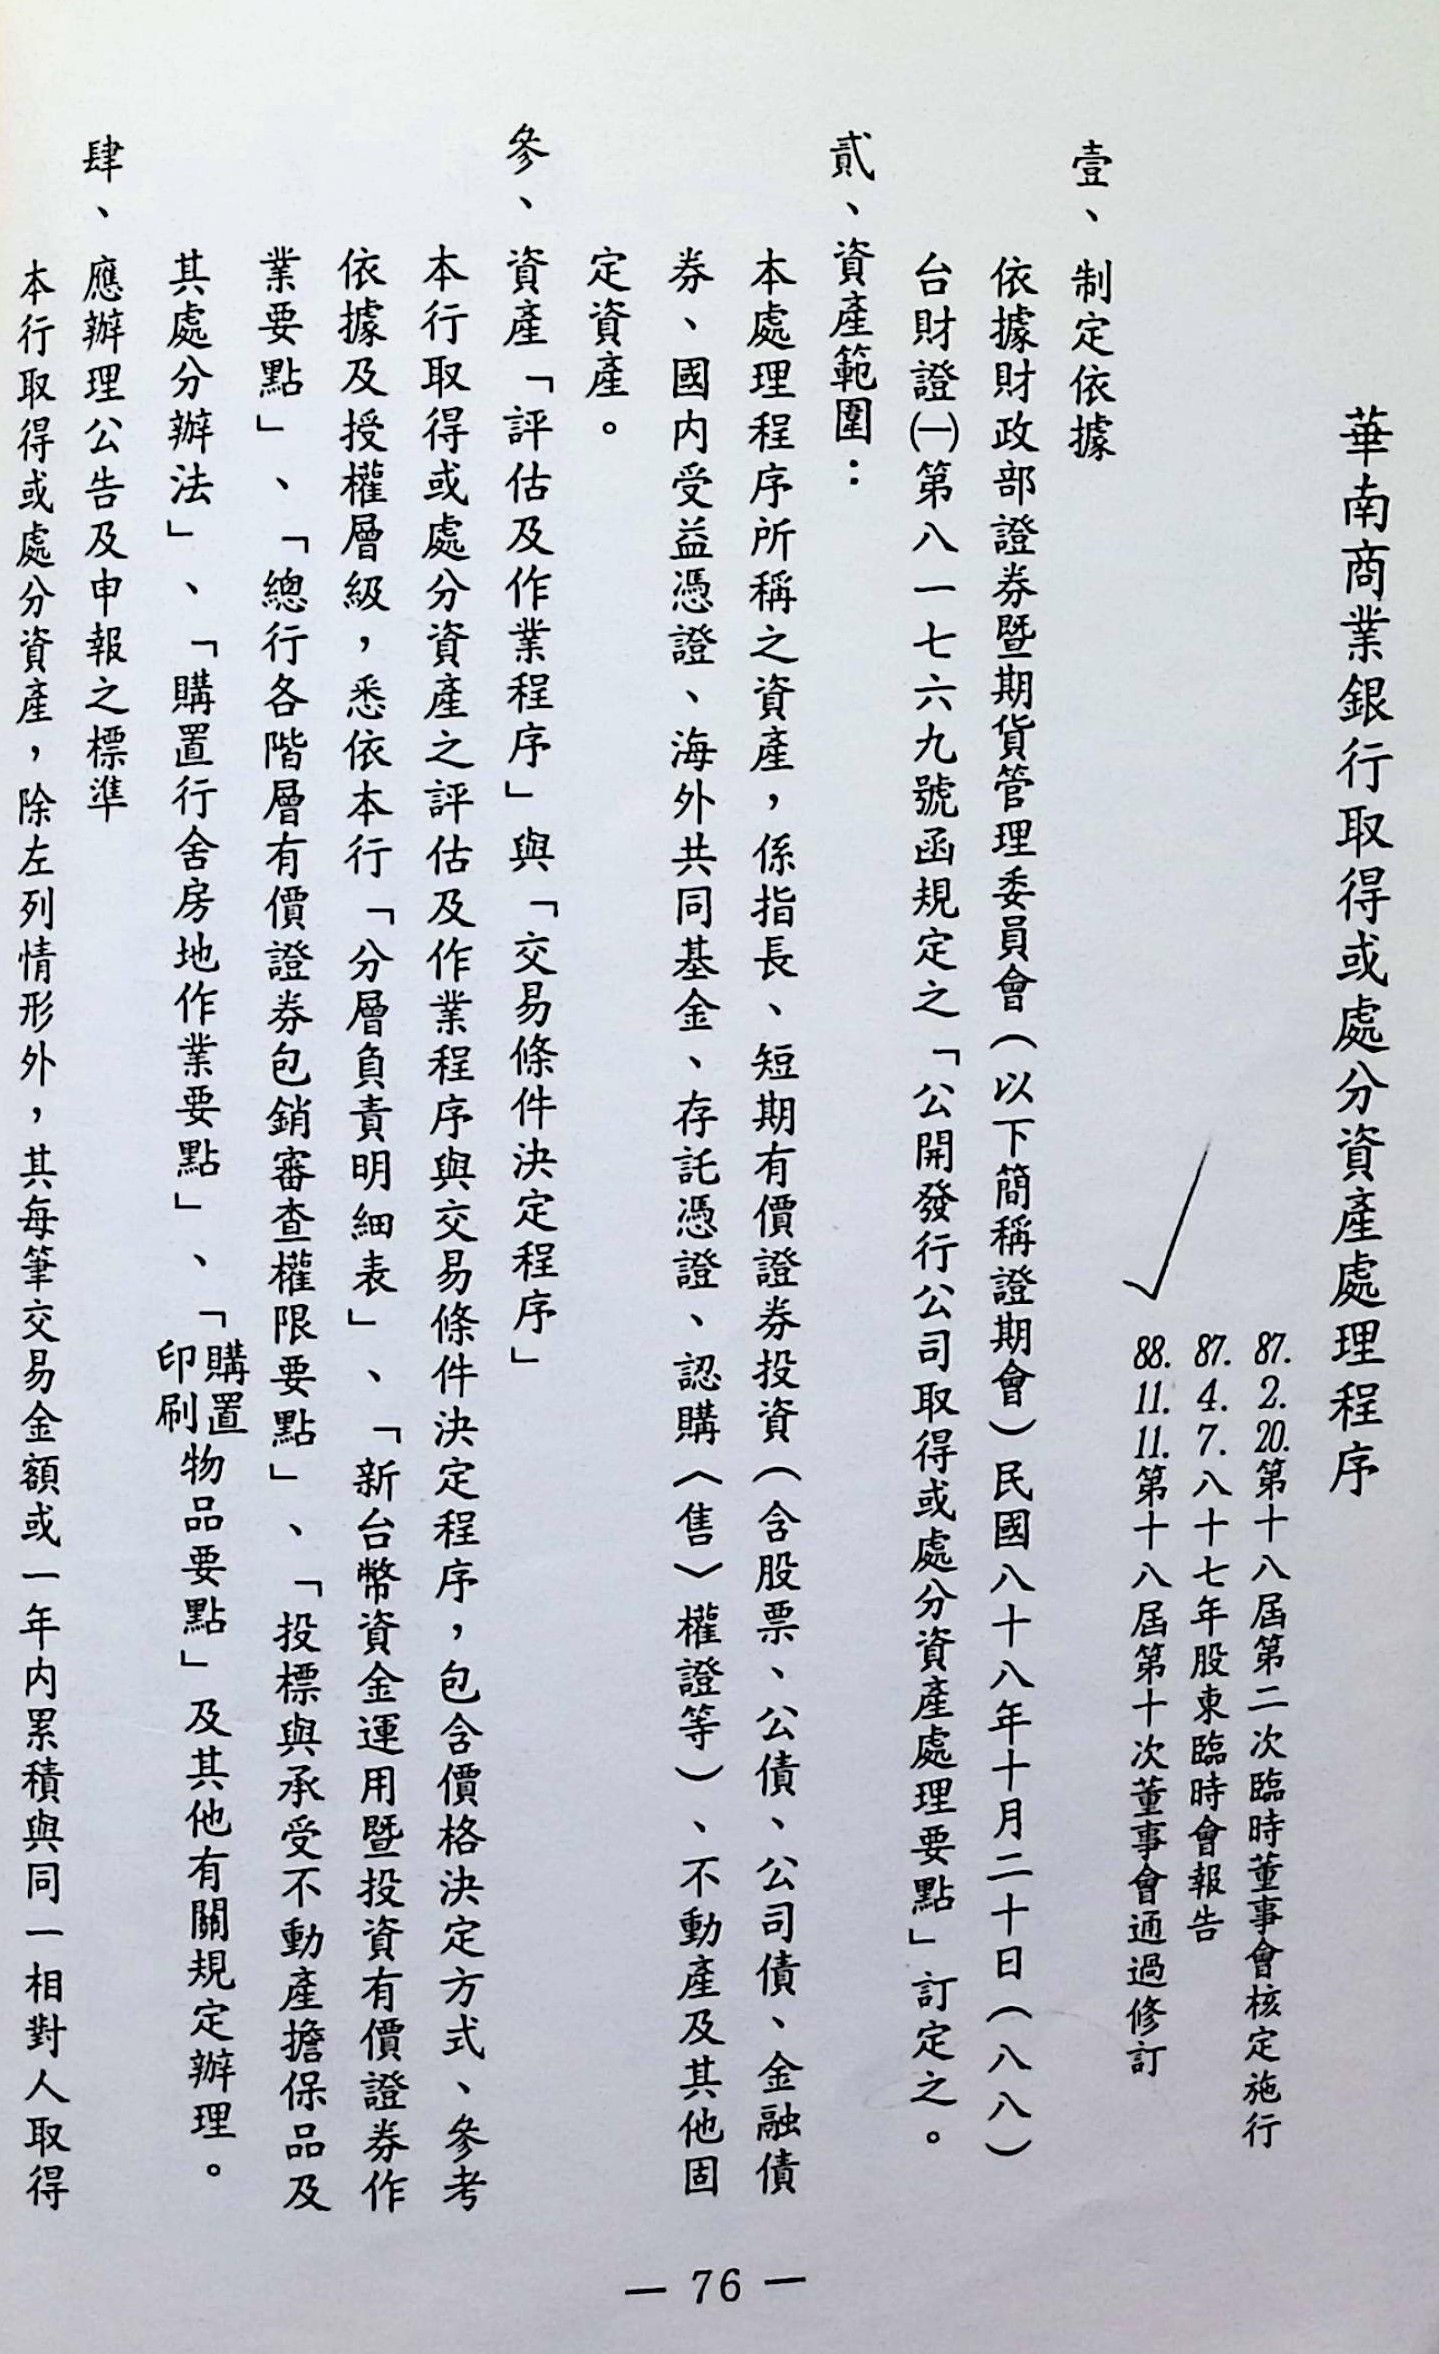 華南商業銀行取得或處分資產處理程序
87.2.20.第十八屆第二次臨時董事會核定施行
87.4.7.八十七年股東臨時會報告
88.11.11.第十八屆第十次董事會通過修訂
壹、制定依據
依據財政部證券暨期貨管理委員會（以下簡稱證期會）民國八十八年十月二十日（八八）
台財證㈠第八一七六九號函規定之「公開發行公司取得或處分資產處理要點」訂定之。
貳、資產範圍：
本處理程序所稱之資產，係指長、短期有價證券投資（含股票、公債、公司債、金融債
券、國內受益憑證、海外共同基金、存託憑證、認購〈售〉權證等）、不動產及其他固
定資產。
參、資產「評估及作業程序」與「交易條件決定程序」
本行取得或處分資產之評估及作業程序與交易條件決定程序，包含價格決定方式、參考
依據及授權層級，悉依本行「分層負責明細表」、「新台幣資金運用暨投資有價證券作
業要點」、「總行各階層有價證券包銷審查權限要點」、「投標與承受不動產擔保品及
其處分辦法」、「購置行舍房地作業要點」、「購置印刷物品要點」及其他有關規定辦理。
肆、應辦理公告及申報之標準
本行取得或處分資產，除左列情形外，其每筆交易金額或一年內累積與同一相對人取得
— 76 —